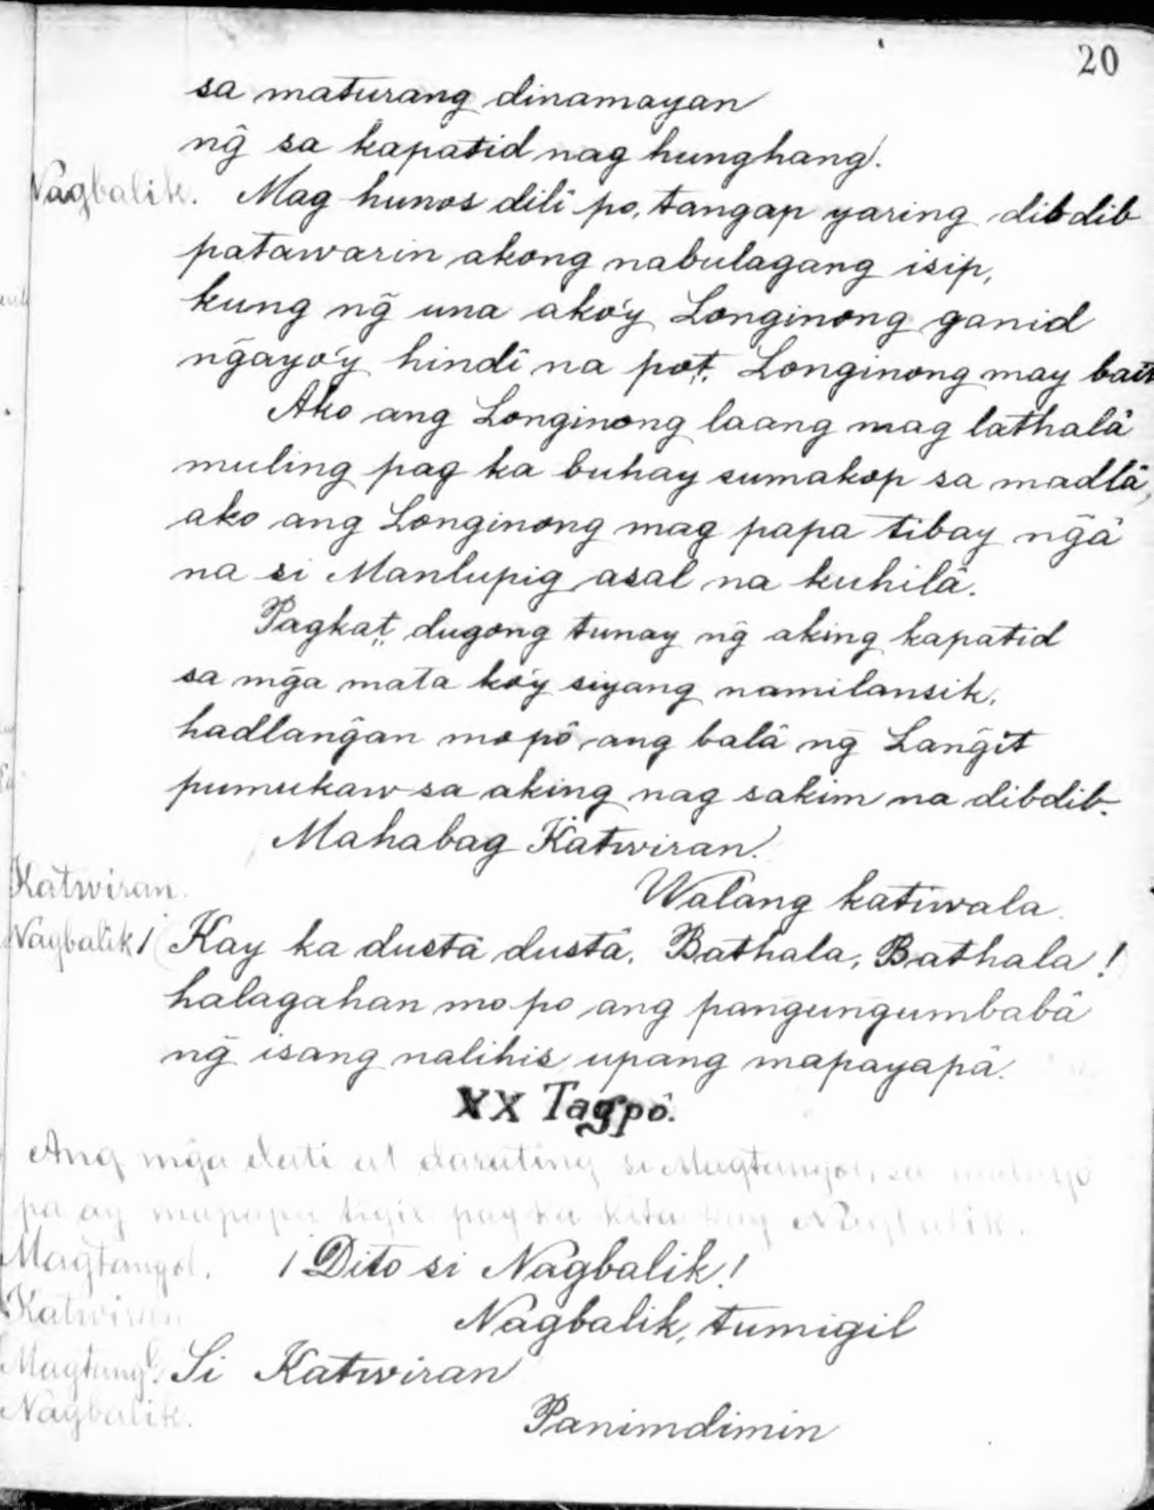 20
sa maturang dinamayan
ng̃ sa kapatid nag hunghang.
Nagbalik. Mag hunos dili po, tangap yaring dibdib
patawarin akong nabulagang isip,
kung ng̃ una ako'y Longinong ganid
ng̃ayo'y hindî na pot, Longinong may bait
Ako ang Longinong laang mag lathalâ
muling pag ka buhay sumakop sa madlâ,
ako ang Longinong mag papa tibay ng̃â
na si Manlupig asal na kuhilâ.
Pagkat, dugong tunay ng̃ aking kapatid
sa mg̃a mata ko'y siyang namilansik,
hadlang̃an mo pô ang balâ ng̃ Lang̃it
pumukaw sa aking nag sakim na dibdib.
Mahabag Katwiran.
Katwiran. Walang katiwala.
Nagbalik ¡Kay ka dustâ dustâ, Bathala, Bathala!
halagahan mo po ang pang̃ung̃umbabâ
ng̃ isang nalihis upang mapayapâ.
XX Tagpô.
Ang mg̃a dati at darating si Magtangol, sa
pa ay mapapa pag ka kita kay Nagbalik.
Magtangol. ¡Dito si Nagbalik!
Katwiran Nagbalik, tumigil
Magtangl. Si Katwiran
Nagbalik. Panimdimin